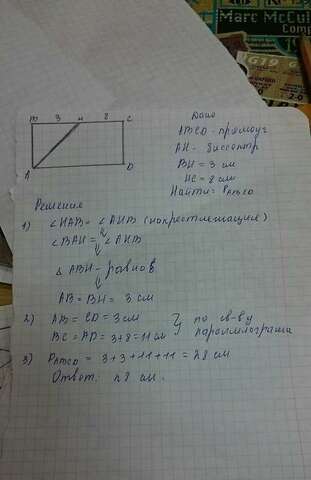 MARC McCU
Comp
G19
2-0
B 3 H 8 C
A D
Дано
ABCD - прямоуг
AH - биссектр
BH = 3 см
HC = 8 см
Найти: PABCD
Решение
1) ∠HAB = ∠AHB (накрестлежащие)
∠BAH = ∠AHB
⇓
△ ABH - равноб
⇓
AB = BH = 3 см
2) AB = CD = 3 см
BC = AD = 3+8 = 11 см } по св-ву параллелограма
3) PABCD = 3+3+11+11 = 28 см
Ответ: 28 см.